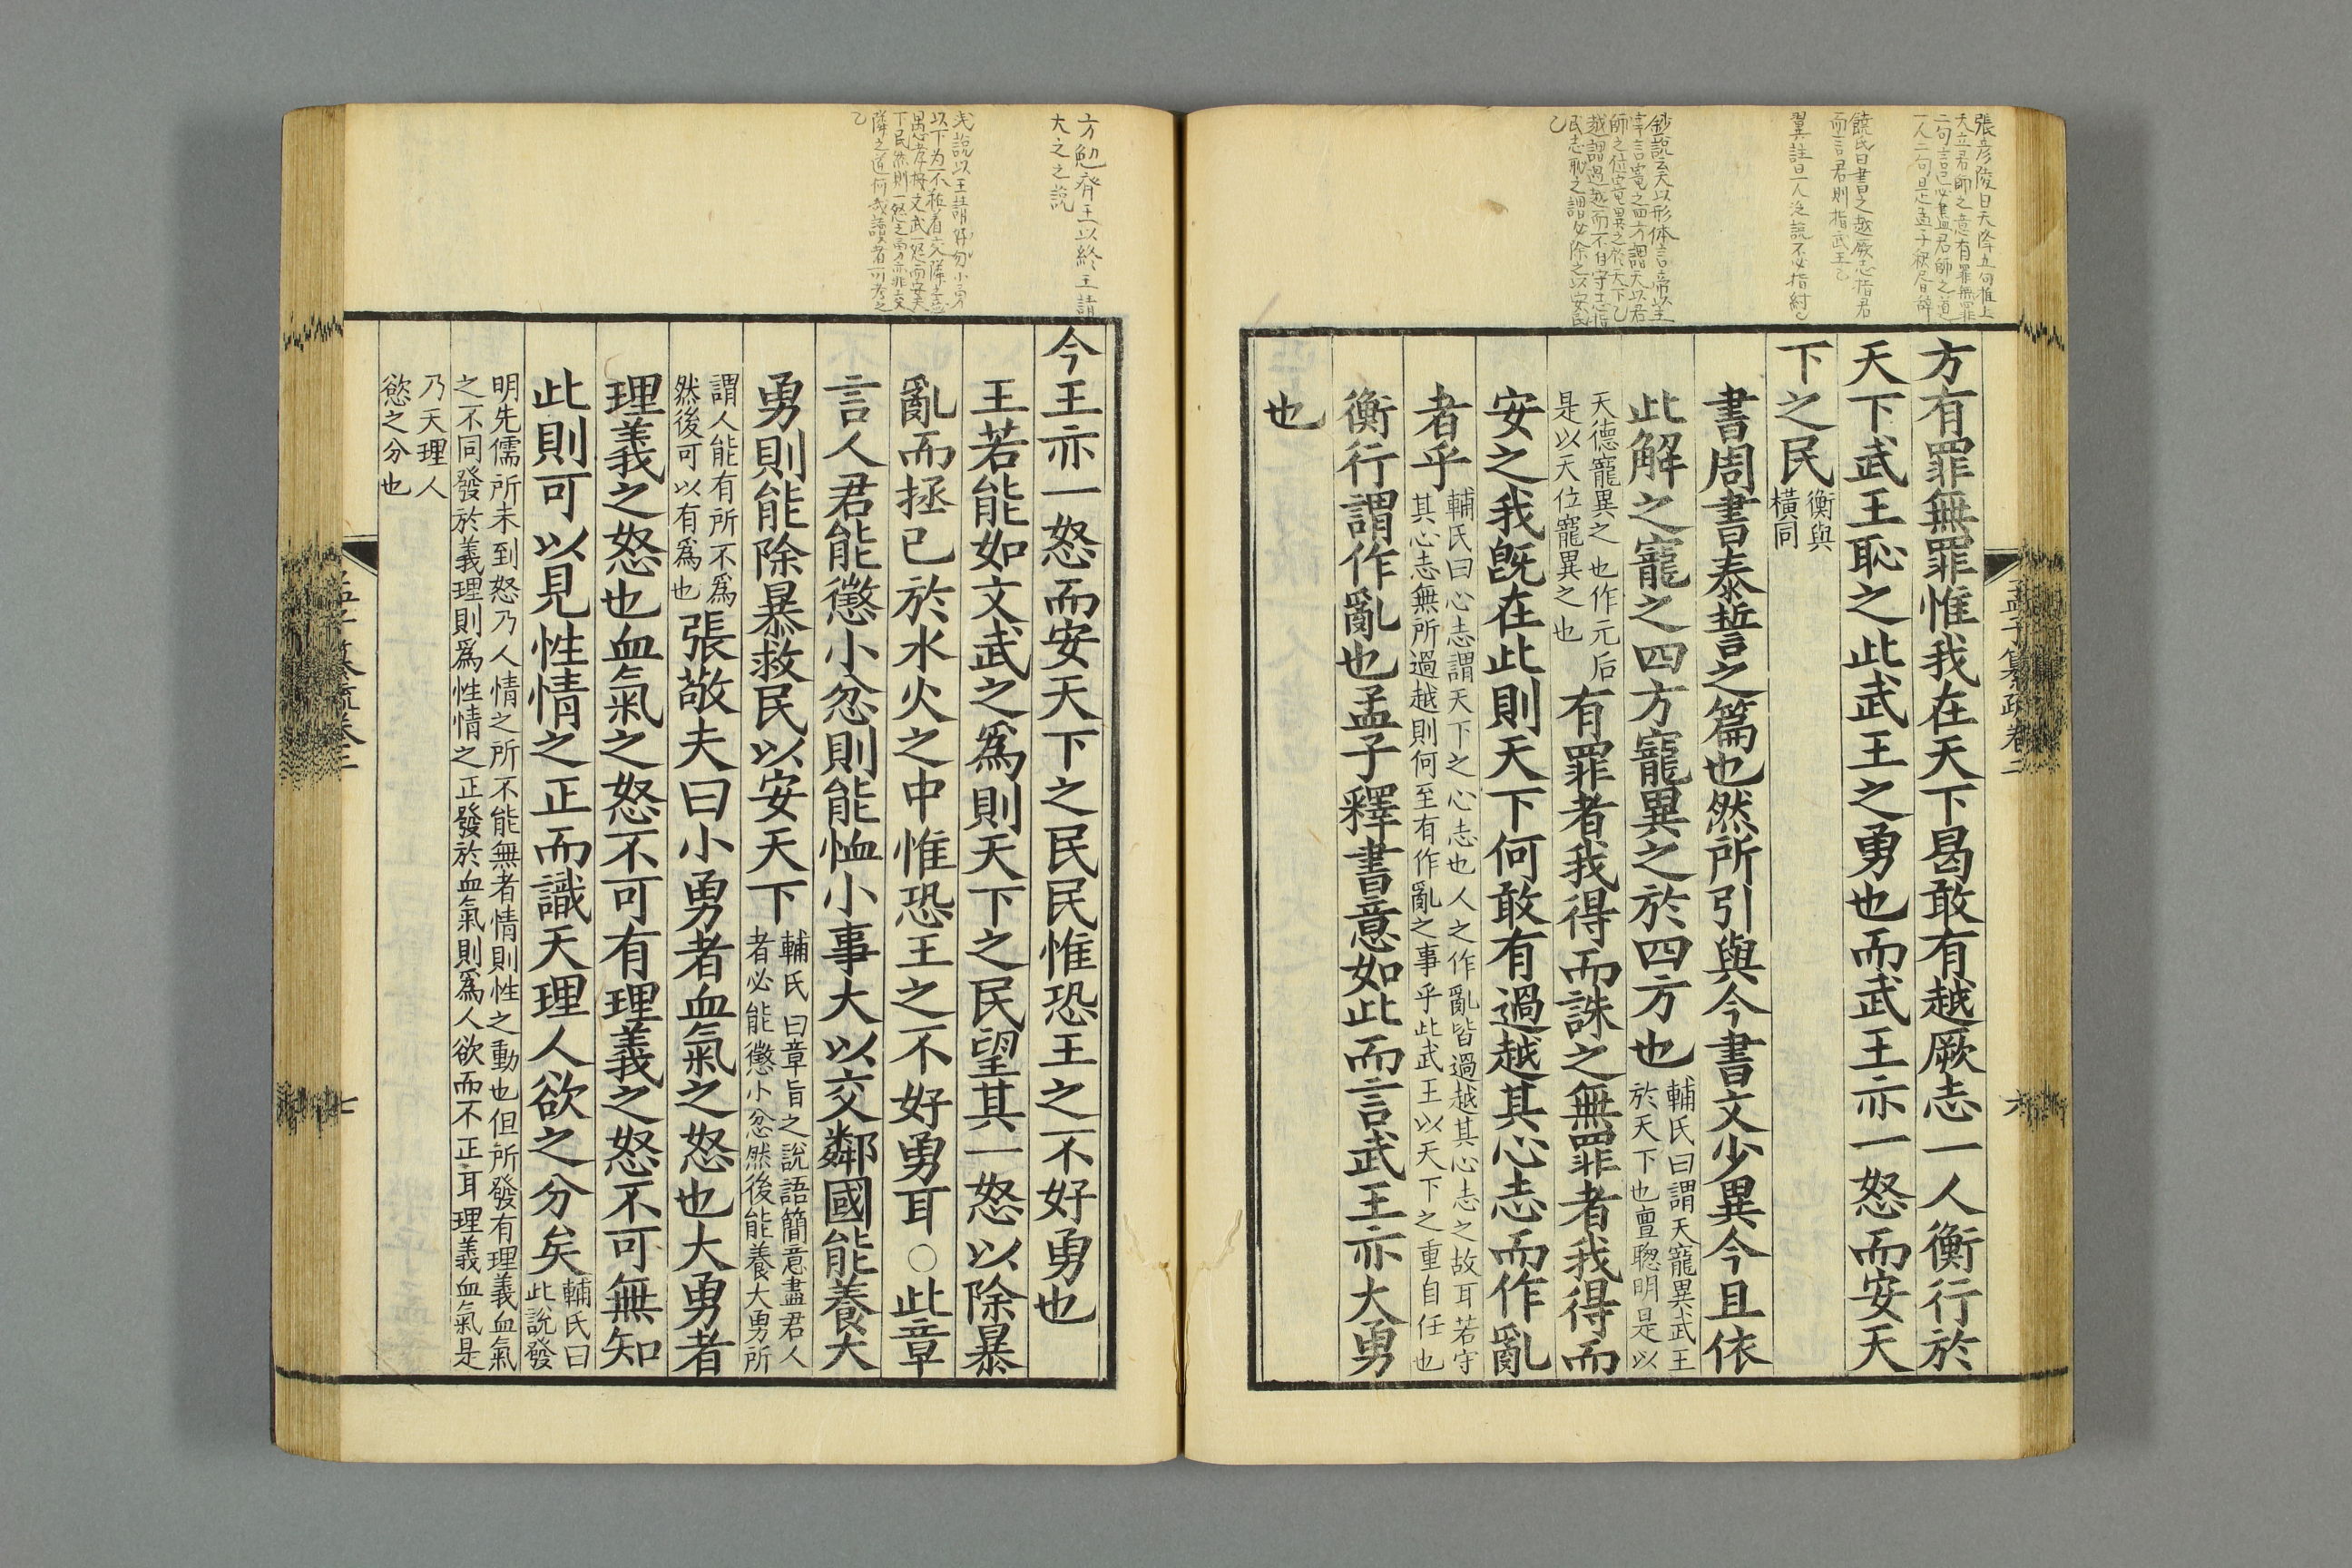 張彦陵曰天降五句推上
天立君師之意有罪無罪
二句言已必盡君師之道
一人二句是孟子釈尼日辞
饒氏曰書之越厥志指君
而言君則指武王乙
翼註曰一人泛説不必指紂乙
鈔説云天以形体言帝以主
宰言寵之四方謂天以君
師之位寵異之於天下乙
民志恥之謂必除之以安民
乙
方有罪無罪惟我在天下曷敢有越厥志一人衡行於
天下武王恥之此武王之勇也而武王亦一怒而安天
下之民衡與
橫同
書周書泰誓之篇也然所引與今書文少異今且依
此解之寵之四方寵異之於四方也輔氏曰謂天寵異武王
於天下也亶聰明是以
天德寵異之也作元后
是以天位寵異之也有罪者我得而誅之無罪者我得而
安之我既在此則天下何敢有過越其心志而作亂
者乎輔氏曰心志謂天下之心志也人之作亂皆過越其心志之故耳若守
其心志無所過越則何至有作亂之事乎此武王以天下之重自任也
衡行謂作亂也孟子釋書意如此而言武王亦大勇
也
孟子纂疏卷二
六
方勉齊王以終王請
大之之説
浅説以王請好勿小勇
乙
今王亦一怒而安天下之民民惟恐王之不好勇也
王若能如文武之爲則天下之民望其一怒以除暴
亂而拯已於水火之中惟恐王之不好勇耳○此章
言人君能懲小忿則能恤小事大以交鄰國能養大
勇則能除暴救民以安天下輔氏曰章旨之說語簡意盡君人
者必能懲小忿然後能養大勇所
謂人能有所不爲
然後可以有爲也張敬夫曰小勇者血氣之怒也大勇者
理義之怒也血氣之怒不可有理義之怒不可無知
此則可以見性情之正而識天理人欲之分矣輔氏曰
此說發
明先儒所未到怒乃人情之所不能無者情則性之動也但所發有理義血氣
之不同發於義理則爲性情之正發於血氣則爲人欲而不正耳理義血氣是
乃天理人
慾之分也
七